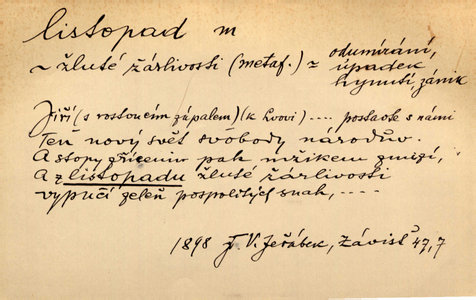 listopad m
~ žluté žárlivosti (metaf.) = odumírání,
úpadek
hynutí, zánik
Jiří (s rostoucím zápalem) (k Lvovi) .... poslouk s námi
Ten nový svět svobody národův.
A stopy příšením pak mžikem zmizí,
A z listopadu žluté žárlivosti
vypučí zeleň pospolitých snah, ....
1898 F. V. Jeřábek, Závist 47,7